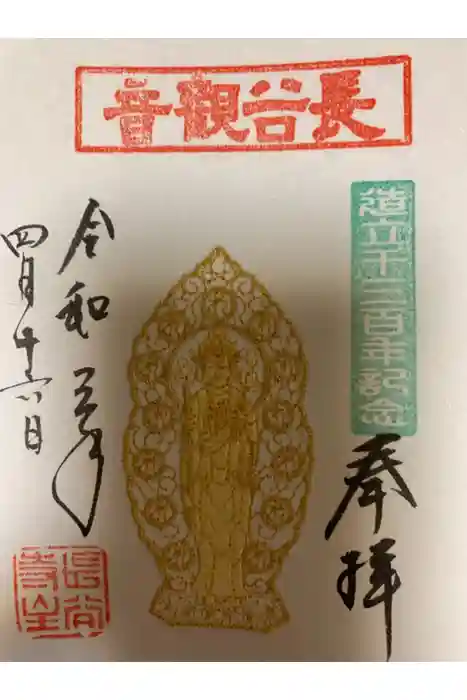 長谷觀音
造立千三百年記念
奉拝
令和三年
四月十六日
長谷寺